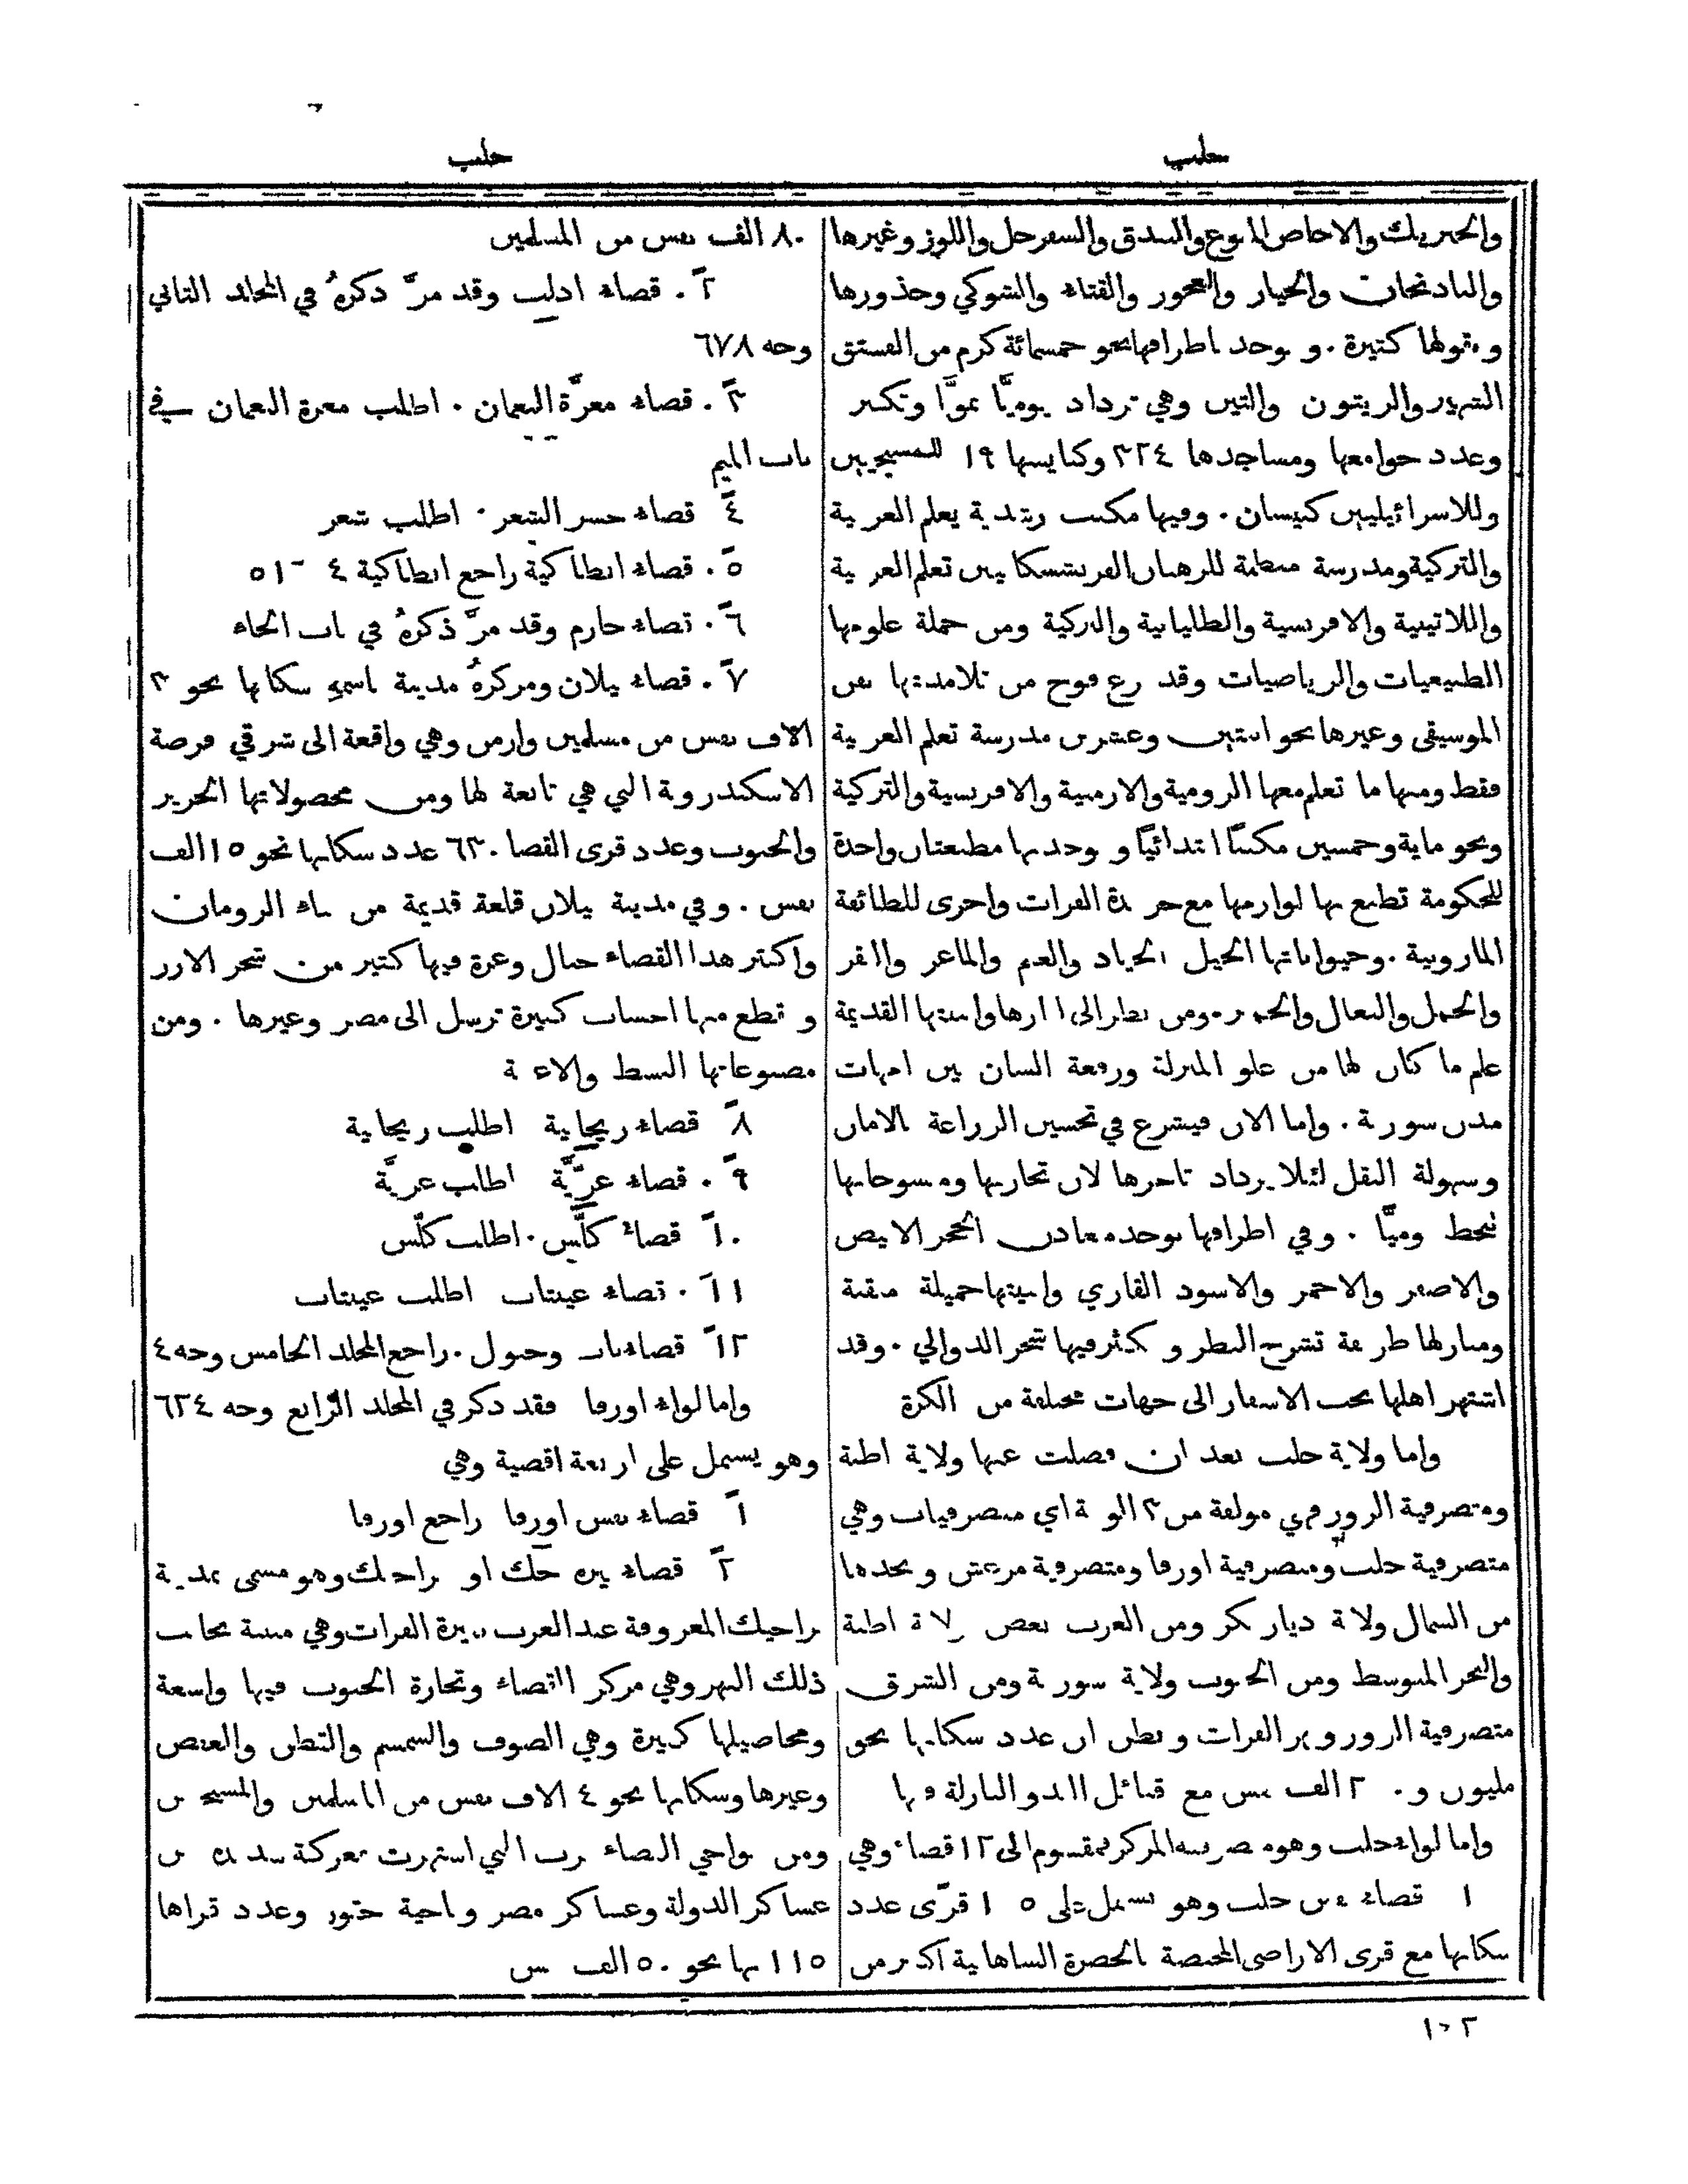 حلب
حلب
والخبريك والاجاص المنوع والبندق والسفرجل واللوز وغيرها
والباذنجان والخيار والعجور والقثاء والشوكي وجذورها
وبقولها كثيرة . ويوجد باطرافها نحو خمسمائة كرم من الفستق
الشهير والزيتون والتين وهي تزداد يوميًّا نموًّا وتكثر
وعدد جوامعها ومساجدها ٣٢٤ وكنايسها ١٩ للمسيحيين
وللاسرائيليين كنيسان . وفيها مكتب رشدية يعلم العربية
والتركية ومدرسة منظمة للرهبان الفرنسسكانيين تعلم العربية
واللاتينية والافرنسية والطليانية والتركية ومن جملة علومها
الطبيعيات والرياضيات وقد برع فوج من تلامذتها بفن
الموسيقى وغيرها نحو اثنتين وعشرين مدرسة تعلم العربية
فقط ومنها ما تعلم معها الرومية والارمنية والافرنسية والتركية
ونحو ماية وخمسين مكتبًا ابتدائيًّا ويوجد بها مطبعتان واحدة
للحكومة تطبع بها لوازمها مع جريدة الفرات واخرى للطائفة
المارونية . وحيواناتها الخيل الجياد والغنم والماعز والبقر
والجمل والبغال والحمير . ومن نظر الى اثارها وابنيتها القديمة
علم ما كان لها من علو المنزلة ورفعة الشان بين امهات
مدن سورية . واما الان فيشرع في تحسين الزراعة بالامان
وسهولة النقل لئلا يزداد تاخرها لان تجارتها ومنسوجاتها
تنحط يوميًّا . وفي اطرافها يوجد معادن الحجر الابيض
والاصفر والاحمر والاسود القاري وابنيتها جميلة متقنة
ومنازلها ظريفة تشرح النظر ويكثر فيها شجر الدوالي . وقد
اشتهر اهلها بحب الاسفار الى جهات مختلفة من الكرة
واما ولاية حلب بعد ان فصلت عنها ولاية اطنة
ومتصرفية الزور فهي مولفة من ٣ الوية اي متصرفيات وهي
متصرفية حلب ومتصرفية اورفا ومتصرفية مرعش ويحدها
من الشمال ولاية ديار بكر ومن الغرب بعض ولاية اطنة
والبحر المتوسط ومن الجنوب ولاية سورية ومن الشرق
متصرفية الزور ونهر الفرات ويظن ان عدد سكانها نحو
مليون و٢٠٠ الف نفس مع قبائل البدو النازلة فيها
واما لواء حلب وهو متصرفية المركز فمقسوم الى ١٢ قضاء وهي
١ قضاء نفس حلب وهو يشتمل على ١٠٥ قرى عدد
سكانها مع قرى الاراضي المختصة بالحضرة الشاهانية اكثر من
٨٠ الف نفس من المسلمين
٢ . قضاء ادلب وقد مرَّ ذكرهُ في المجلد الثاني
وجه ٦٧٨
٣ . قضاء معرَّة النعمان . اطلب معرة النعمان في
باب الميم
٤ قضاء جسر الشغر . اطلب شغر
٥ . قضاء انطاكية راجع انطاكية ٤ - ٥١
٦ . قضاء حارم وقد مرَّ ذكرهُ في باب الحاء
٧ . قضاء بيلان ومركزهُ مدينة باسمهِ سكانها نحو ٣
الاف نفس من مسلمين وارمن وهي واقعة الى شرقي فرضة
الاسكندرونة التي هي تابعة لها ومن محصولاتها الحرير
والحبوب وعدد قرى القضا ٦٣٠ عدد سكانها نحو ١٥ الف
نفس . وفي مدينة بيلان قلعة قديمة من بناء الرومان
واكثر هذا القضاء جبال وعرة فيها كثير من شجر الارز
ويقطع منها اخشاب كبيرة ترسل الى مصر وغيرها . ومن
مصنوعاتها البسط والاعبية
٨ قضاء ريحانية اطلب ريحانية
٩ . قضاء عزيَّة اطلب عزيَّة
١٠ قضاء كلّس . اطلب كلّس
١١ . قضاء عينتاب اطلب عينتاب
١٢ قضاء باب وجبول . راجع المجلد الخامس وجه ٤
واما لواء اورفا فقد ذكر في المجلد الرابع وجه ٦٢٤
وهو يشتمل على اربعة اقضية وهي
١ قضاء نفس اورفا راجع اورفا
٢ قضاء بيره جك او براجيك وهو مسمى بمدينة
براجيك المعروفة عند العرب ببيرة الفرات وهي مبنية بجانب
ذلك النهر وهي مركز القضاء وتجارة الحبوب فيها واسعة
ومحاصيلها كبيرة وهي الصوف والسمسم والقطن والعفص
وغيرها وسكانها نحو ٤ الاف نفس من المسلمين والمسيحيين
ومن نواحي القضاء نزب التي اشتهرت بمعركة شديدة بين
عساكر الدولة وعساكر مصر وناحية ختور وعدد قراها
١١٥ بها نحو ٥٠ الف نفس
١٠٢